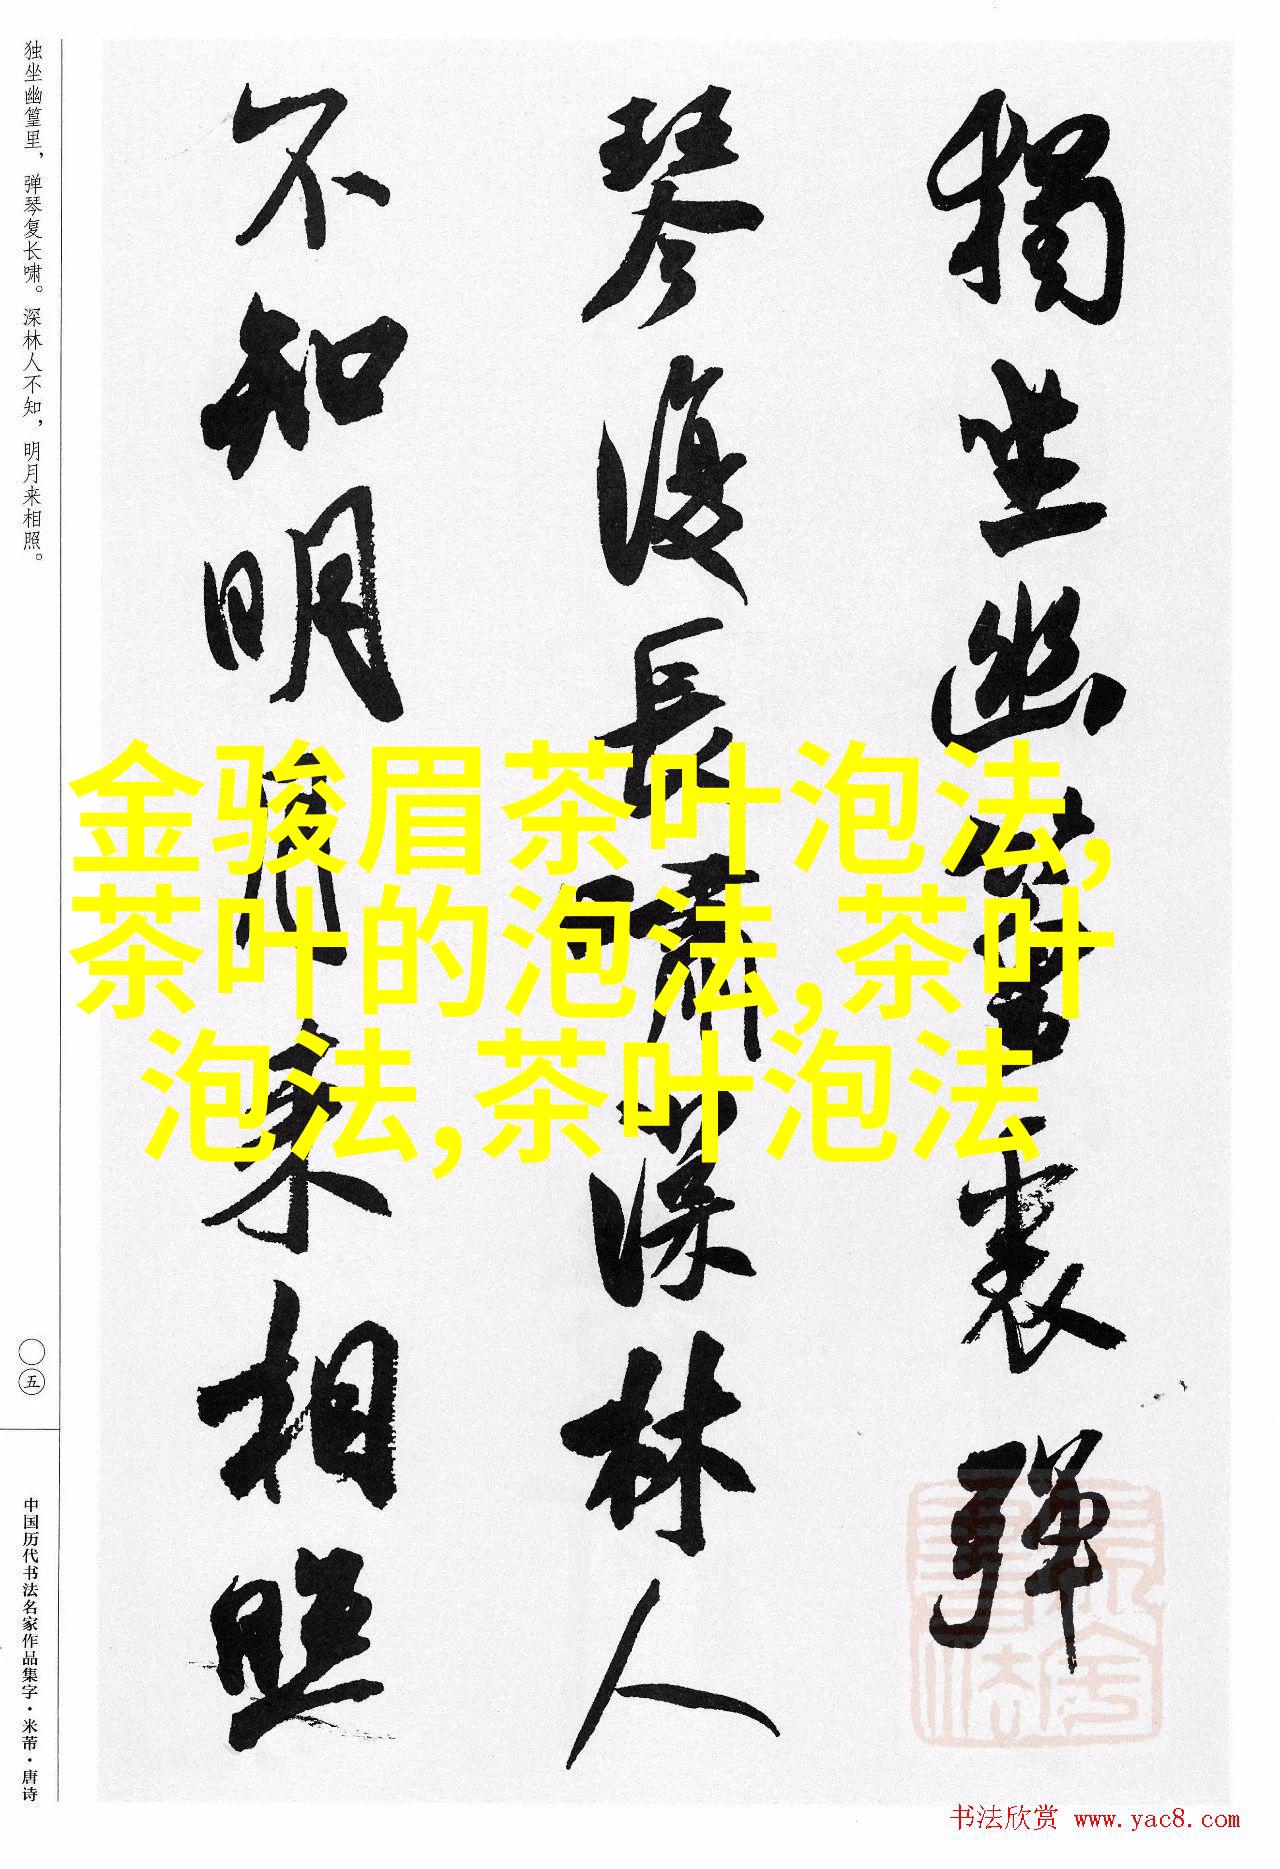 獨坐幽篁裏彈
琴復長嘯深林人
不知明月來相照
金骏眉茶叶泡法,
茶叶的泡法,茶叶
泡法,茶叶泡法
独坐幽篁里，弹琴复长啸。深林人不知，明月来相照。
〇五
中国历代书法名家作品集字·米芾·唐诗
书法欣赏 www.yac8.com